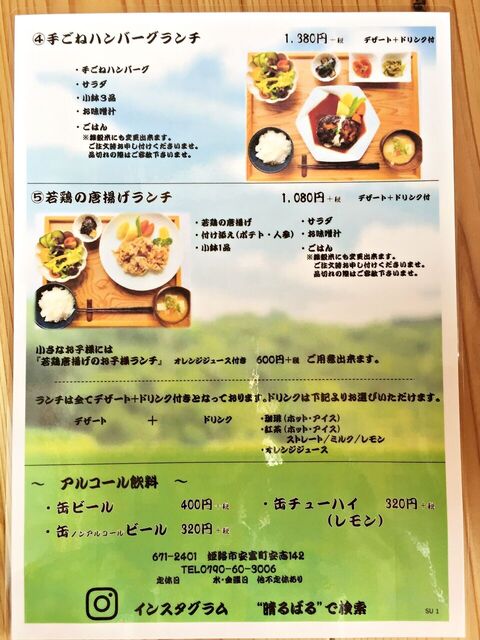 ④手ごねハンバーグランチ 1,380円+税 デザート+ドリンク付
・手ごねハンバーグ
・サラダ
・小鉢3品
・お味噌汁
・ごはん
※雑穀米にも変更出来ます。
ご注文時お申し付けくださいませ。
品切れの際はご容赦下さいませ。
⑤若鶏の唐揚げランチ 1,080円+税 デザート+ドリンク付
・若鶏の唐揚げ
・付け添え(ポテト・人参)
・小鉢1品
・サラダ
・お味噌汁
・ごはん
※雑穀米にも変更出来ます。
ご注文時お申し付けくださいませ。
品切れの際はご容赦下さいませ。
小さなお子様には
『若鶏唐揚げのお子様ランチ』 オレンジジュース付き 600円+税 ご用意出来ます。
ランチは全てデザート+ドリンク付きとなっております。ドリンクは下記よりお選びいただけます。
デザート + ドリンク
・珈琲(ホット・アイス)
・紅茶(ホット・アイス)
ストレート/ミルク/レモン
・オレンジジュース
～ アルコール飲料 ～
・缶ビール 400円+税
・缶ノンアルコールビール 320円+税
・缶チューハイ 320円+税
(レモン)
671-2401 姫路市安富町安志142
TEL0790-60-3006
定休日 水・金曜日 他不定休あり
インスタグラム "晴るばる"で検索
SU 1